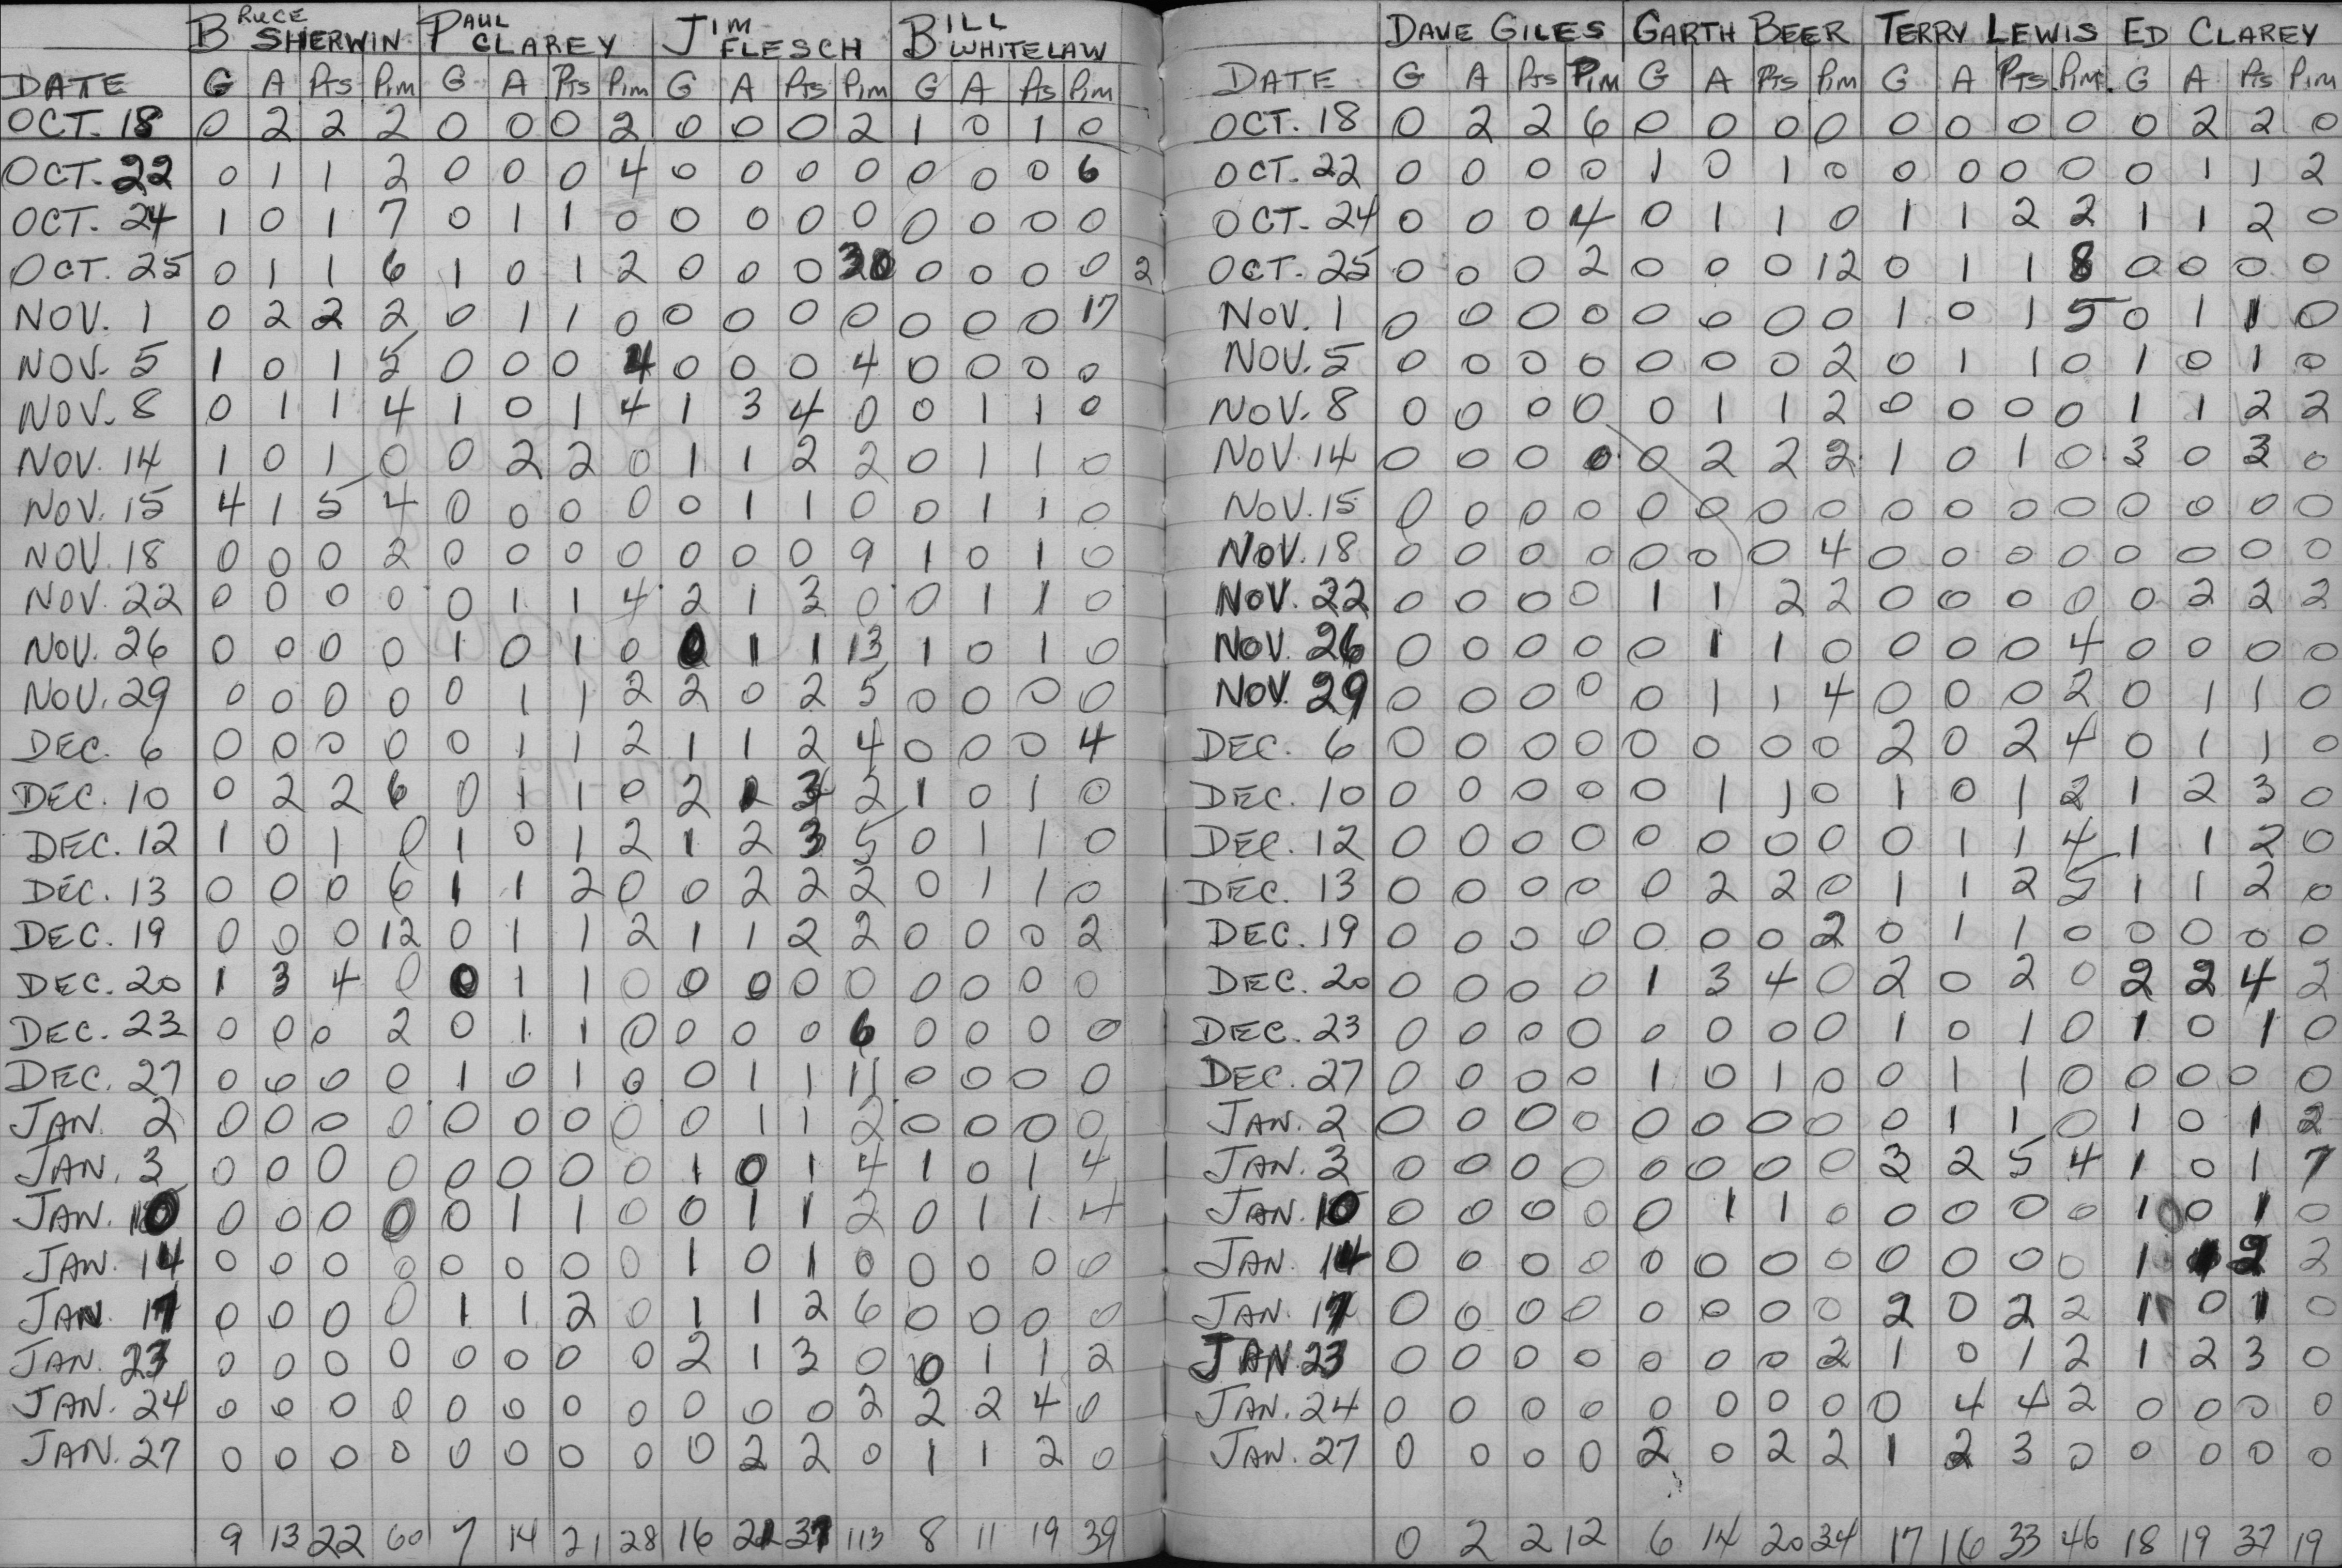 BRUCE SHERWIN PAUL CLAREY JIM FLESCH BILL WHITELAW
DATE G A Pts Pim G A Pts Pim G A Pts Pim G A Pts Pim
OCT. 18 0 2 2 2 0 0 0 2 0 0 0 2 1 0 1 0
OCT. 22 0 1 1 2 0 0 0 4 0 0 0 0 0 0 0 6
OCT. 24 1 0 1 7 0 1 1 0 0 0 0 0 0 0 0 0
OCT. 25 0 1 1 6 1 0 1 2 0 0 0 30 0 0 0 0 2
NOV. 1 0 2 2 2 0 1 1 0 0 0 0 0 0 0 0 17
NOV. 5 1 0 1 5 0 0 0 4 0 0 0 4 0 0 0 0
NOV. 8 0 1 1 4 1 0 1 4 1 3 4 0 0 1 1 0
NOV. 14 1 0 1 0 0 2 2 0 1 1 2 2 0 1 1 0
NOV. 15 4 1 5 4 0 0 0 0 0 1 1 0 0 1 1 0
NOV. 18 0 0 0 2 0 0 0 0 0 0 0 9 1 0 1 0
NOV. 22 0 0 0 0 0 1 1 4 2 1 3 0 0 1 1 0
NOV. 26 0 0 0 0 1 0 1 0 0 1 1 13 1 0 1 0
NOV. 29 0 0 0 0 0 1 1 2 2 0 2 5 0 0 0 0
DEC. 6 0 0 0 0 0 1 1 2 1 1 2 4 0 0 0 4
DEC. 10 0 2 2 6 0 1 1 0 2 3 2 1 0 1 0
DEC. 12 1 0 1 0 1 0 1 2 1 2 3 5 0 1 1 0
DEC. 13 0 0 0 6 1 1 2 0 0 2 2 2 0 1 1 0
DEC. 19 0 0 0 12 0 1 1 2 1 1 2 2 0 0 0 2
DEC. 20 1 3 4 0 0 1 1 0 0 0 0 0 0 0 0 0
DEC. 23 0 0 0 2 0 1 1 0 0 0 0 6 0 0 0 0
DEC. 27 0 0 0 0 1 0 1 0 0 1 1 11 0 0 0 0
JAN. 2 0 0 0 0 0 0 0 0 0 1 1 2 0 0 0 0
JAN. 3 0 0 0 0 0 0 0 0 1 0 1 4 1 0 1 4
JAN. 10 0 0 0 0 0 1 1 0 0 1 1 2 0 1 1 4
JAN. 14 0 0 0 0 0 0 0 0 1 0 1 0 0 0 0 0
JAN. 17 0 0 0 0 1 1 2 0 1 1 2 6 0 0 0 0
JAN. 23 0 0 0 0 0 0 0 0 2 1 3 0 0 1 1 2
JAN. 24 0 0 0 0 0 0 0 0 0 0 0 2 2 2 4 0
JAN. 27 0 0 0 0 0 0 0 0 0 2 2 0 1 1 2 0
9 13 22 60 7 14 21 28 16 21 37 113 8 11 19 39
DAVE GILES GARTH BEER TERRY LEWIS ED CLAREY
DATE G A Pts Pim G A Pts Pim G A Pts Pim. G A Pts Pim
OCT. 18 0 2 2 6 0 0 0 0 0 0 0 0 0 2 2 0
OCT. 22 0 0 0 0 1 0 1 0 0 0 0 0 0 1 1 2
OCT. 24 0 0 0 4 0 1 1 0 1 1 2 2 1 1 2 0
OCT. 25 0 0 0 2 0 0 0 12 0 1 1 8 0 0 0 0
NOV. 1 0 0 0 0 0 0 0 0 1 0 1 5 0 1 1 0
NOV. 5 0 0 0 0 0 0 0 2 0 1 1 0 1 0 1 0
NOV. 8 0 0 0 0 0 1 1 2 0 0 0 0 1 1 2 2
NOV. 14 0 0 0 0 0 2 2 2 1 0 1 0 3 0 3 0
NOV. 15 0 0 0 0 0 0 0 0 0 0 0 0 0 0 0 0
NOV. 18 0 0 0 0 0 0 0 4 0 0 0 0 0 0 0 0
NOV. 22 0 0 0 0 1 1 2 2 0 0 0 0 0 2 2 2
NOV. 26 0 0 0 0 0 1 1 0 0 0 0 4 0 0 0 0
NOV. 29 0 0 0 0 0 1 1 4 0 0 0 2 0 1 1 0
DEC. 6 0 0 0 0 0 0 0 0 2 0 2 4 0 1 1 0
DEC. 10 0 0 0 0 0 1 1 0 1 0 1 2 1 2 3 0
DEC. 12 0 0 0 0 0 0 0 0 0 1 1 4 1 1 2 0
DEC. 13 0 0 0 0 0 2 2 0 1 1 2 5 1 1 2 0
DEC. 19 0 0 0 0 0 0 0 2 0 1 1 0 0 0 0 0
DEC. 20 0 0 0 0 1 3 4 0 2 0 2 0 2 2 4 2
DEC. 23 0 0 0 0 0 0 0 0 1 0 1 0 1 0 1 0
DEC. 27 0 0 0 0 1 0 1 0 0 1 1 0 0 0 0 0
JAN. 2 0 0 0 0 0 0 0 0 0 1 1 0 1 0 1 2
JAN. 3 0 0 0 0 0 0 0 0 3 2 5 4 1 0 1 7
JAN. 10 0 0 0 0 0 1 1 0 0 0 0 0 1 0 1 0
JAN. 14 0 0 0 0 0 0 0 0 0 0 0 0 1 1 2 2
JAN. 17 0 0 0 0 0 0 0 0 2 0 2 2 1 0 1 0
JAN 23 0 0 0 0 0 0 0 2 1 0 1 2 1 2 3 0
JAN. 24 0 0 0 0 0 0 0 0 0 4 4 2 0 0 0 0
JAN. 27 0 0 0 0 2 0 2 2 1 2 3 0 0 0 0 0
0 2 2 12 6 14 20 34 17 16 33 46 18 19 37 19